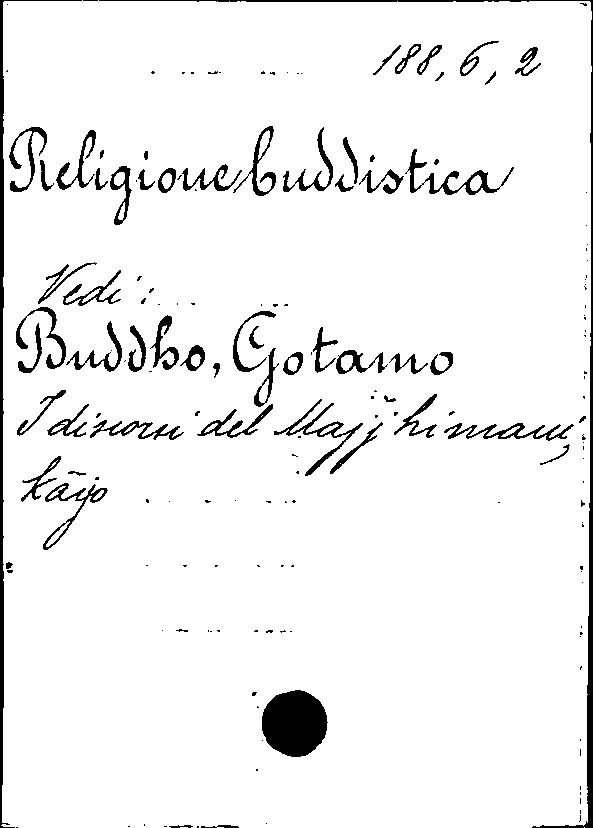 188, 6, 2
Religione buddistica
Vedi:
Buddho, Gotamo
I discorsi del Majjhimani,
kāyo